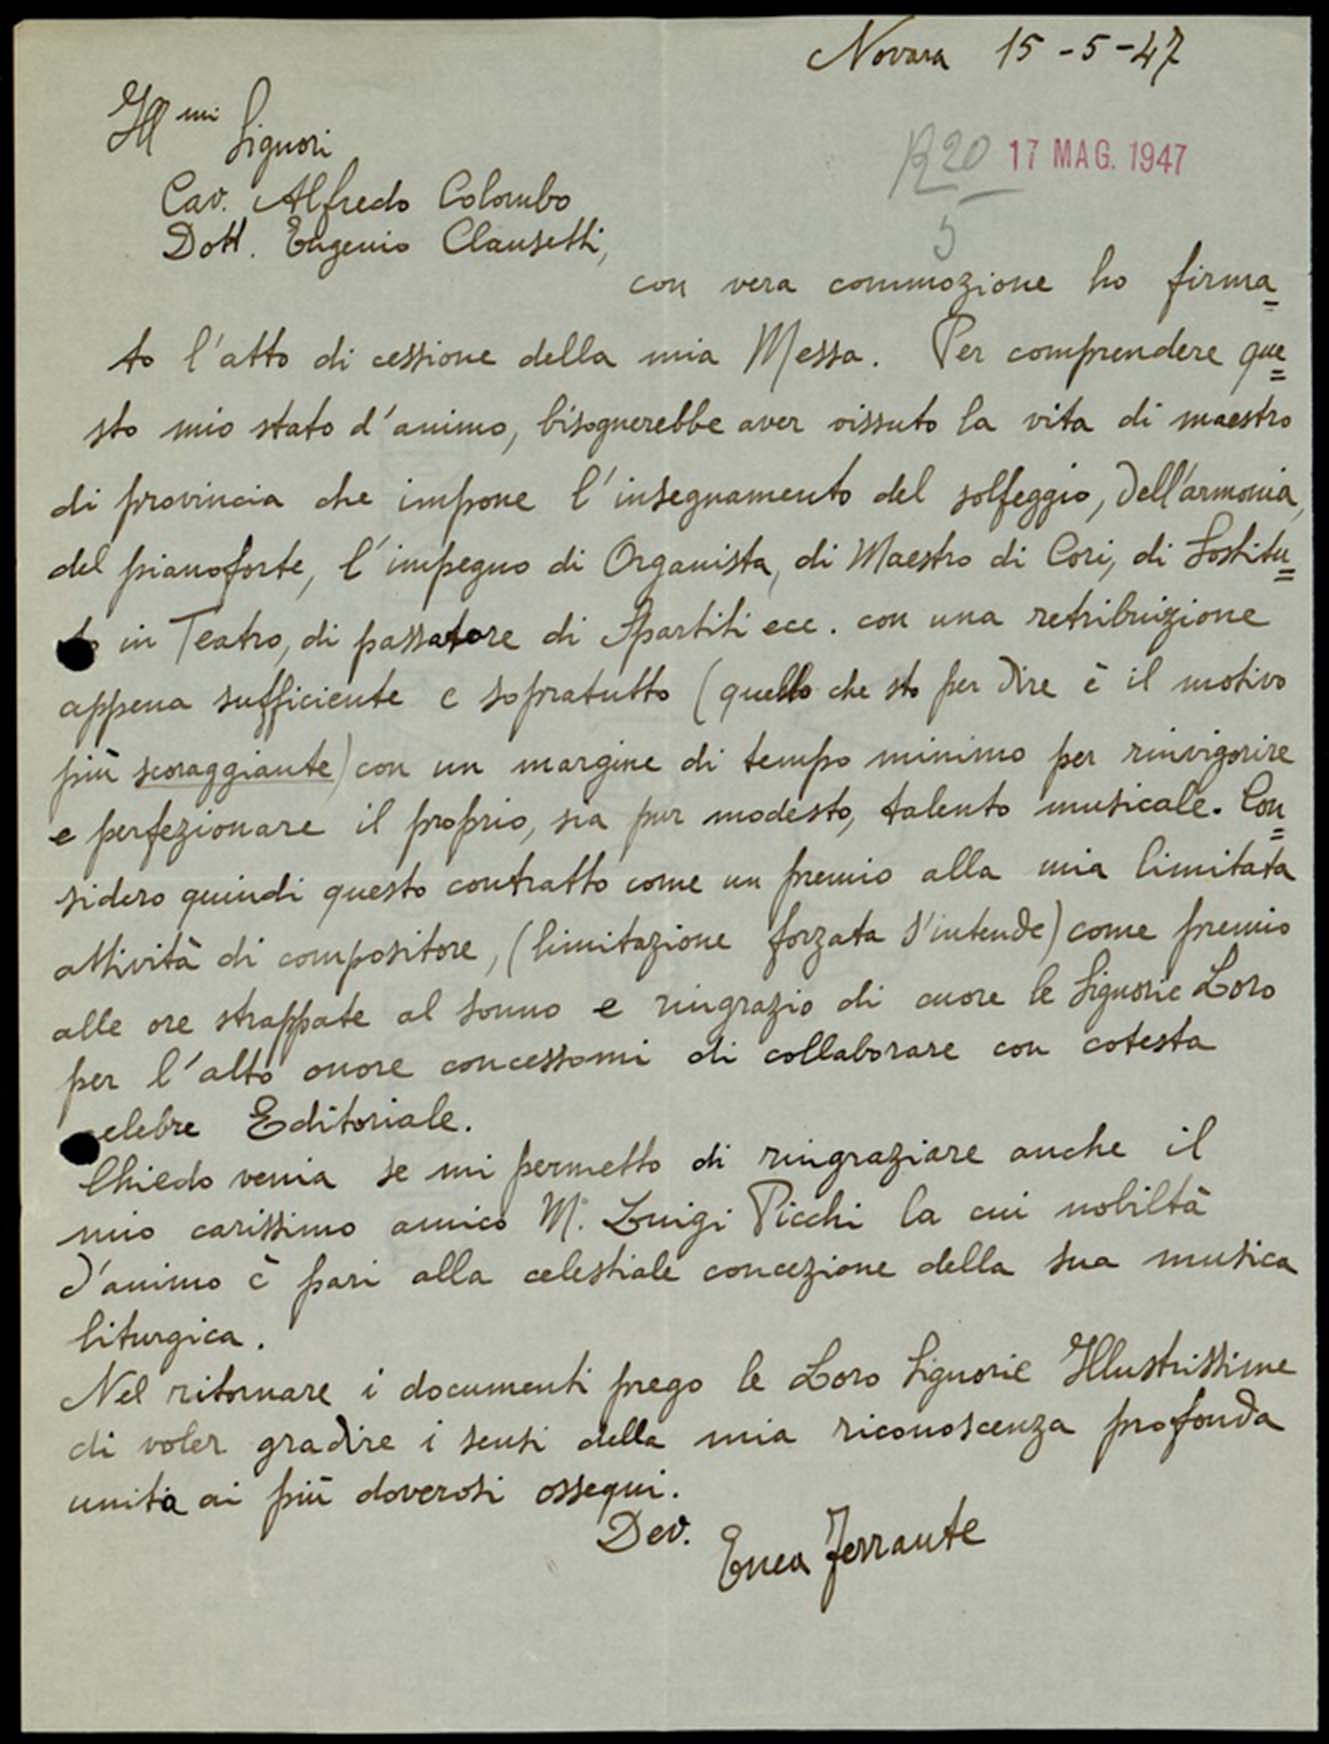 Novara 15-5-47
Ill mi Signori
R 20 17 MAG. 1947
5
Cav. Alfredo Colombo
Dott. Eugenio Clausetti,
con vera commozione ho firma=
to l'atto di cessione della mia Messa. Per comprendere que=
sto mio stato d'animo, bisognerebbe aver vissuto la vita di maestro
di provincia che impone l'insegnamento del solfeggio, dell'armonia,
del pianoforte, l'impegno di Organista, di Maestro di Cori, di Sostitu=
to in Teatro, di passatore di Spartiti ecc. con una retribuizione
appena sufficiente e sopratutto (quello che sto per dire è il motivo
più scoraggiante) con un margine di tempo minimo per rinvigorire
e perfezionare il proprio, sia pur modesto, talento musicale. Con=
sidero quindi questo contratto come un premio alla mia limitata
attività di compositore, (limitazione forzata s'intende) come premio
alle ore strappate al sonno e ringrazio di cuore le Signorie Loro
per l'alto onore concessomi di collaborare con cotesta
celebre Editoriale.
Chiedo venia se mi permetto di ringraziare anche il
mio carissimo amico M. Luigi Picchi la cui nobiltà
d'animo è pari alla celestiale concezione della sua musica
liturgica.
Nel ritornare i documenti prego le Loro Signorie Illustrissime
di voler gradire i sensi della mia riconoscenza profonda
unita ai più doverosi ossequi.
Dev. Enea Ferrante